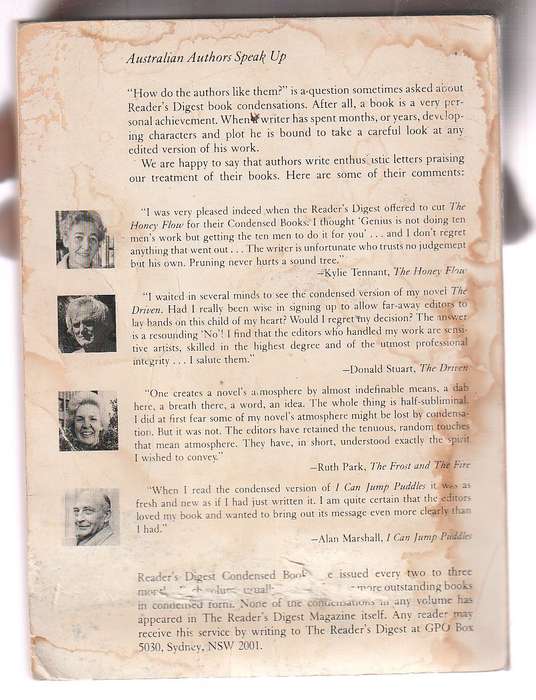 Australian Authors Speak Up
"How do the authors like them?" is a question sometimes asked about
Reader's Digest book condensations. After all, a book is a very per-
sonal achievement. When a writer has spent months, or years, develop-
ing characters and plot he is bound to take a careful look at any
edited version of his work.
We are happy to say that authors write enthus istic letters praising
our treatment of their books. Here are some of their comments:
"I was very pleased indeed when the Reader's Digest offered to cut The
Honey Flow for their Condensed Books. I thought 'Genius is not doing ten
men's work but getting the ten men to do it for you' . . . and I don't regret
anything that went out . . . The writer is unfortunate who trusts no judgement
but his own. Pruning never hurts a sound tree."
—Kylie Tennant, The Honey Flow
"I waited in several minds to see the condensed version of my novel The
Driven. Had I really been wise in signing up to allow far-away editors to
lay hands on this child of my heart? Would I regret my decision? The answer
is a resounding 'No'! I find that the editors who handled my work are sensi-
tive artists, skilled in the highest degree and of the utmost professional
integrity . . . I salute them."
—Donald Stuart, The Driven
"One creates a novel's a mosphere by almost indefinable means, a dab
here, a breath there, a word, an idea. The whole thing is half-subliminal.
I did at first fear some of my novel's atmosphere might be lost by condensa-
tion. But it was not. The editors have retained the tenuous, random touches
that mean atmosphere. They have, in short, understood exactly the spirit
I wished to convey."
—Ruth Park, The Frost and The Fire
"When I read the condensed version of I Can Jump Puddles it was as
fresh and new as if I had just written it. I am quite certain that the editors
loved my book and wanted to bring out its message even more clearly than
I had."
—Alan Marshall, I Can Jump Puddles
Reader's Digest Condensed Book e issued every two to three
more outstanding books
in condensed form. None of the condensations in any volume has
appeared in The Reader's Digest Magazine itself. Any reader may
receive this service by writing to The Reader's Digest at GPO Box
5030, Sydney, NSW 2001.